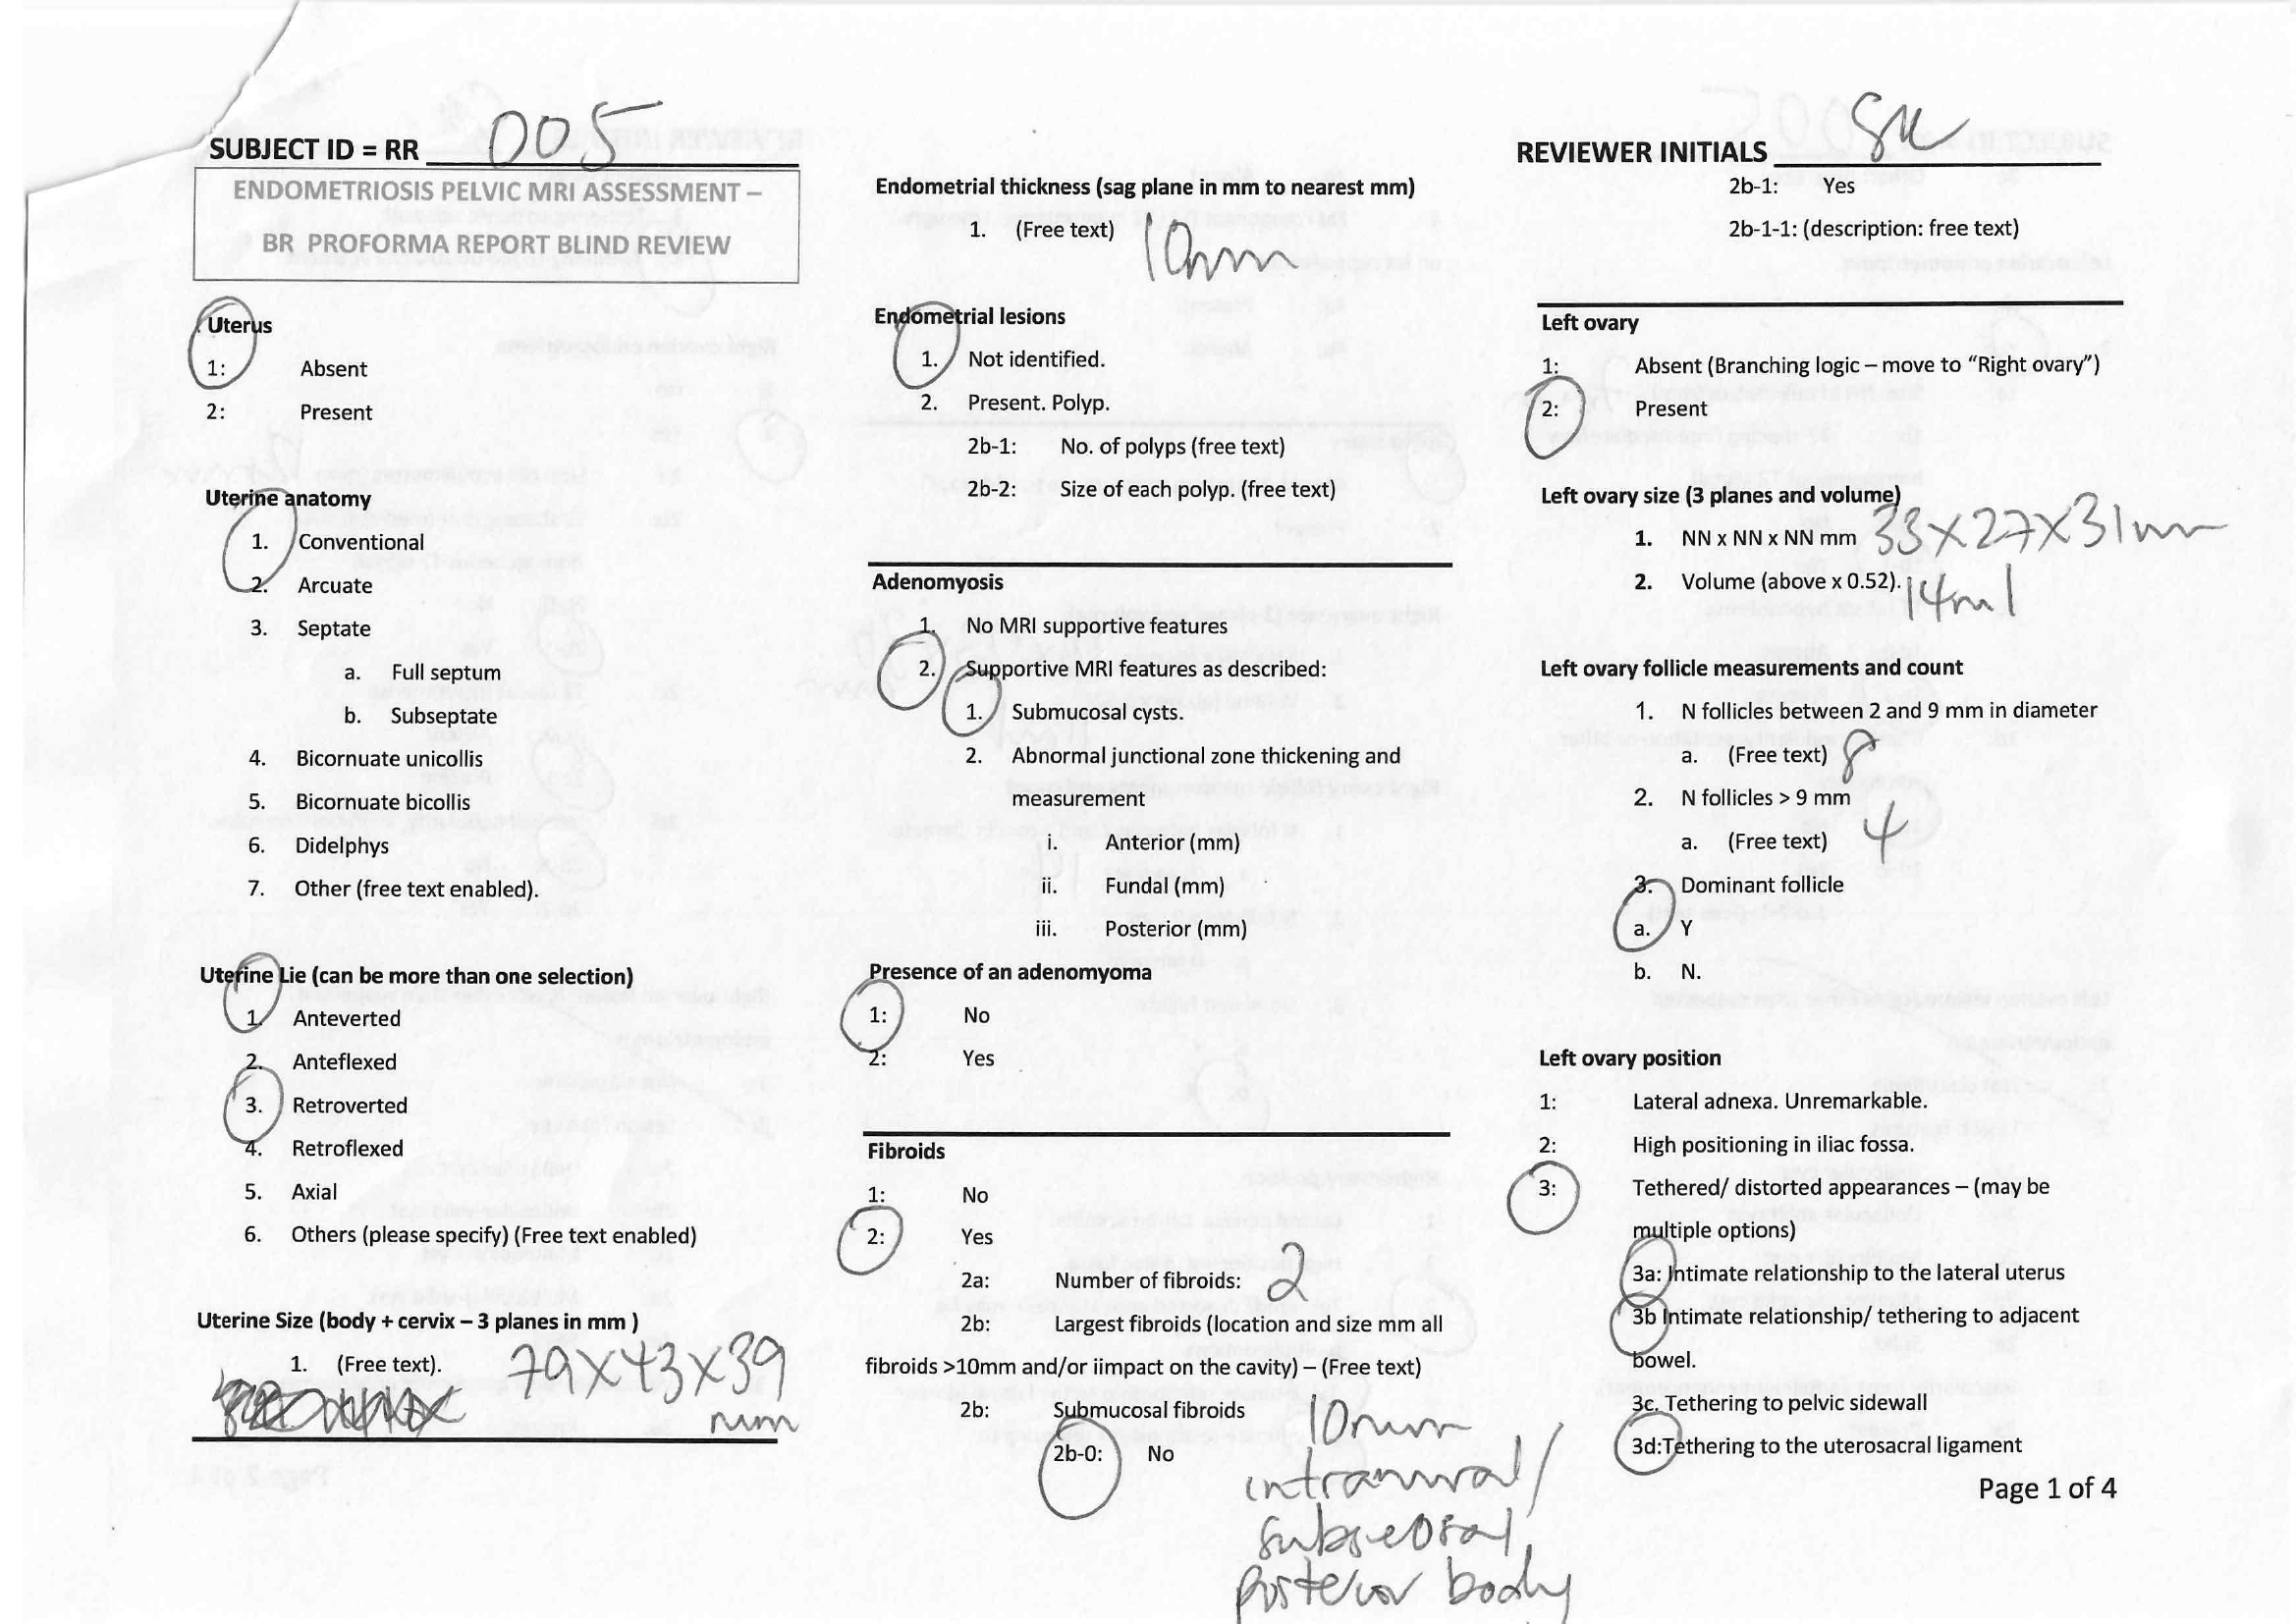 SUBJECT ID = RR 005
ENDOMETRIOSIS PELVIC MRI ASSESSMENT –
BR PROFORMA REPORT BLIND REVIEW
Uterus
1: Absent
2: Present
Uterine anatomy
1. Conventional
2. Arcuate
3. Septate
a. Full septum
b. Subseptate
4. Bicornuate unicollis
5. Bicornuate bicollis
6. Didelphys
7. Other (free text enabled).
Uterine Lie (can be more than one selection)
1. Anteverted
2. Anteflexed
3. Retroverted
4. Retroflexed
5. Axial
6. Others (please specify) (Free text enabled)
Uterine Size (body + cervix – 3 planes in mm )
1. (Free text). 79x43x39
mm
Endometrial thickness (sag plane in mm to nearest mm)
1. (Free text) 10mm
Endometrial lesions
1. Not identified.
2. Present. Polyp.
2b-1: No. of polyps (free text)
2b-2: Size of each polyp. (free text)
Adenomyosis
1. No MRI supportive features
2. Supportive MRI features as described:
1. Submucosal cysts.
2. Abnormal junctional zone thickening and
measurement
i. Anterior (mm)
ii. Fundal (mm)
iii. Posterior (mm)
Presence of an adenomyoma
1: No
2: Yes
Fibroids
1: No
2: Yes
2a: Number of fibroids: 2
2b: Largest fibroids (location and size mm all
fibroids >10mm and/or iimpact on the cavity) – (Free text)
2b: Submucosal fibroids
2b-0: No
10mm
intramural/
subserosal
posterior body
REVIEWER INITIALS
2b-1: Yes
2b-1-1: (description: free text)
Left ovary
1: Absent (Branching logic – move to “Right ovary”)
2: Present
Left ovary size (3 planes and volume)
1. NN x NN x NN mm 33x27x31mm
2. Volume (above x 0.52). 14ml
Left ovary follicle measurements and count
1. N follicles between 2 and 9 mm in diameter
a. (Free text) 8
2. N follicles > 9 mm
a. (Free text) 4
3. Dominant follicle
a. Y
b. N.
Left ovary position
1: Lateral adnexa. Unremarkable.
2: High positioning in iliac fossa.
3: Tethered/ distorted appearances – (may be
multiple options)
3a: Intimate relationship to the lateral uterus
3b Intimate relationship/ tethering to adjacent
bowel.
3c. Tethering to pelvic sidewall
3d:Tethering to the uterosacral ligament
Page 1 of 4